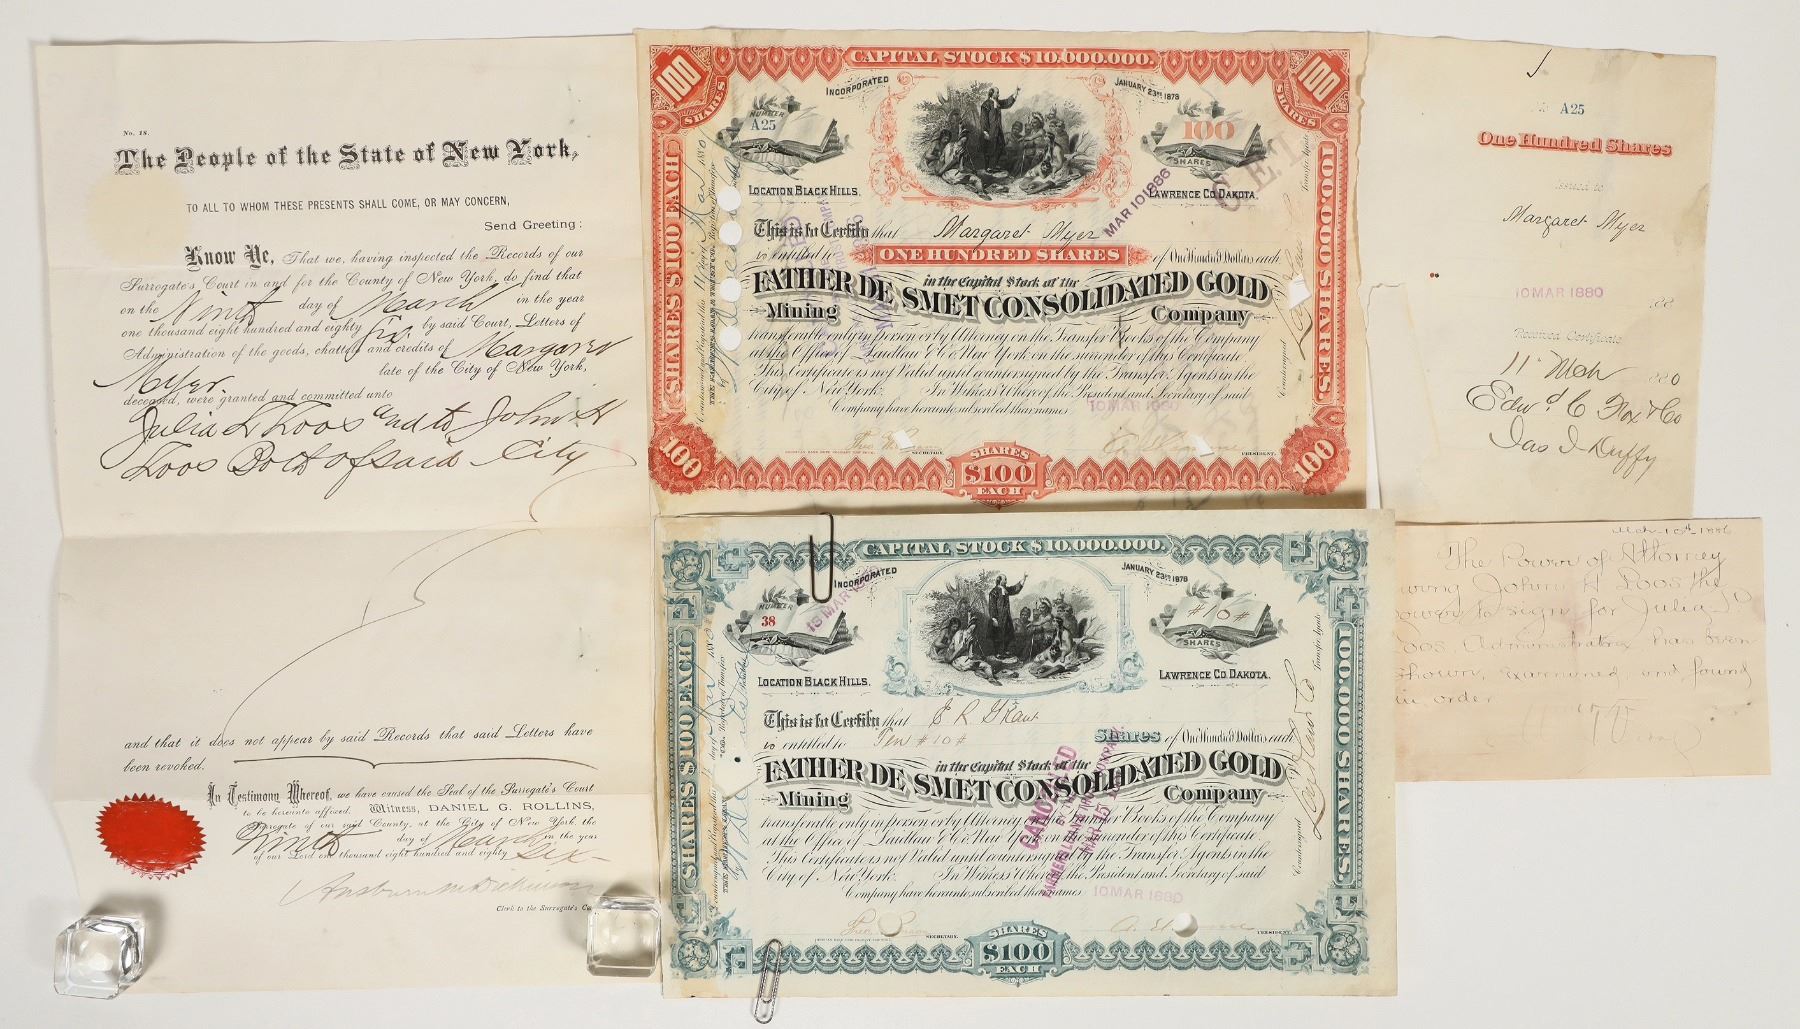 No. 18.
The People of the State of New York,
TO ALL TO WHOM THESE PRESENTS SHALL COME, OR MAY CONCERN,
Send Greeting:
Know Ye, That we, having inspected the Records of our
Surrogate's Court in and for the County of New York, do find that
on the Ninth day of March in the year
one thousand eight hundred and eighty six by said Court, Letters of
Administration of the goods, chattels and credits of Margaret
Myer late of the City of New York,
deceased, were granted and committed unto
Julia L Loos and to John H
Loos Both of said City
and that it does not appear by said Records that said Letters have
been revoked.
In Testimony Whereof, we have caused the Seal of the Surrogate's Court
to be hereinto affixed. Witness, DANIEL G. ROLLINS,
Surrogate of our said County, at the City of New York, the
Ninth day of March in the year
of our Lord one thousand eight hundred and eighty Six
Clerk to the Surrogate's Co
CAPITAL STOCK $10.000.000.
100 SHARES
100 SHARES
INCORPORATED
JANUARY 23RD 1878
NUMBER
A25
100
SHARES
LOCATION BLACK HILLS.
LAWRENCE CO. DAKOTA.
MAR 10 1886
This is to Certify that Margaret Myer
is entitled to ONE HUNDRED SHARES of One Hundred Dollars each
in the Capital Stock of the
FATHER DE SMET CONSOLIDATED GOLD
Mining Company
transferable only in person or by Attorney on the Transfer Books of the Company
at the Office of Laidlaw & Co New York on the surrender of this Certificate.
This Certificate is not Valid until countersigned by the Transfer Agents in the
City of New York. In Witness Whereof the President and Secretary of said
Company have hereunto subscribed their names 10 MAR 1880
SECRETARY.
PRESIDENT.
100
SHARES $100 EACH
100
SHARES $100 EACH
100.000 SHARES
Countersigned Laidlaw & Co Transfer Agents
A25
One Hundred Shares
Issued to
Margaret Myer
10 MAR 1880
Received Certificate
11 Mch 1880
Edwd C Fox & Co
Jas J Duffy
CAPITAL STOCK $10.000.000.
INCORPORATED
JANUARY 23RD 1878
NUMBER
38
#10#
SHARES
LOCATION BLACK HILLS.
LAWRENCE CO. DAKOTA.
This is to Certify that E R Grant
is entitled to Ten #10# Shares of One Hundred Dollars each
in the Capital Stock of the
FATHER DE SMET CONSOLIDATED GOLD
Mining Company
CANCELLED
BY THE
FARMERS LOAN & TRUST COMPANY.
transferable only in person or by Attorney on the Transfer Books of the Company
at the Office of Laidlaw & Co New York on the surrender of this Certificate.
This Certificate is not Valid until countersigned by the Transfer Agents in the
City of New York. In Witness Whereof the President and Secretary of said
Company have hereunto subscribed their names 10 MAR 1880
SECRETARY.
PRESIDENT.
SHARES $100 EACH
SHARES $100 EACH
100.000 SHARES
Countersigned Laidlaw & Co Transfer Agents
Mch 10th 1886
The Power of Attorney
John H Loos the
power to sign for Julia
Loos Administratrix has been
shown, examined, and found
in order